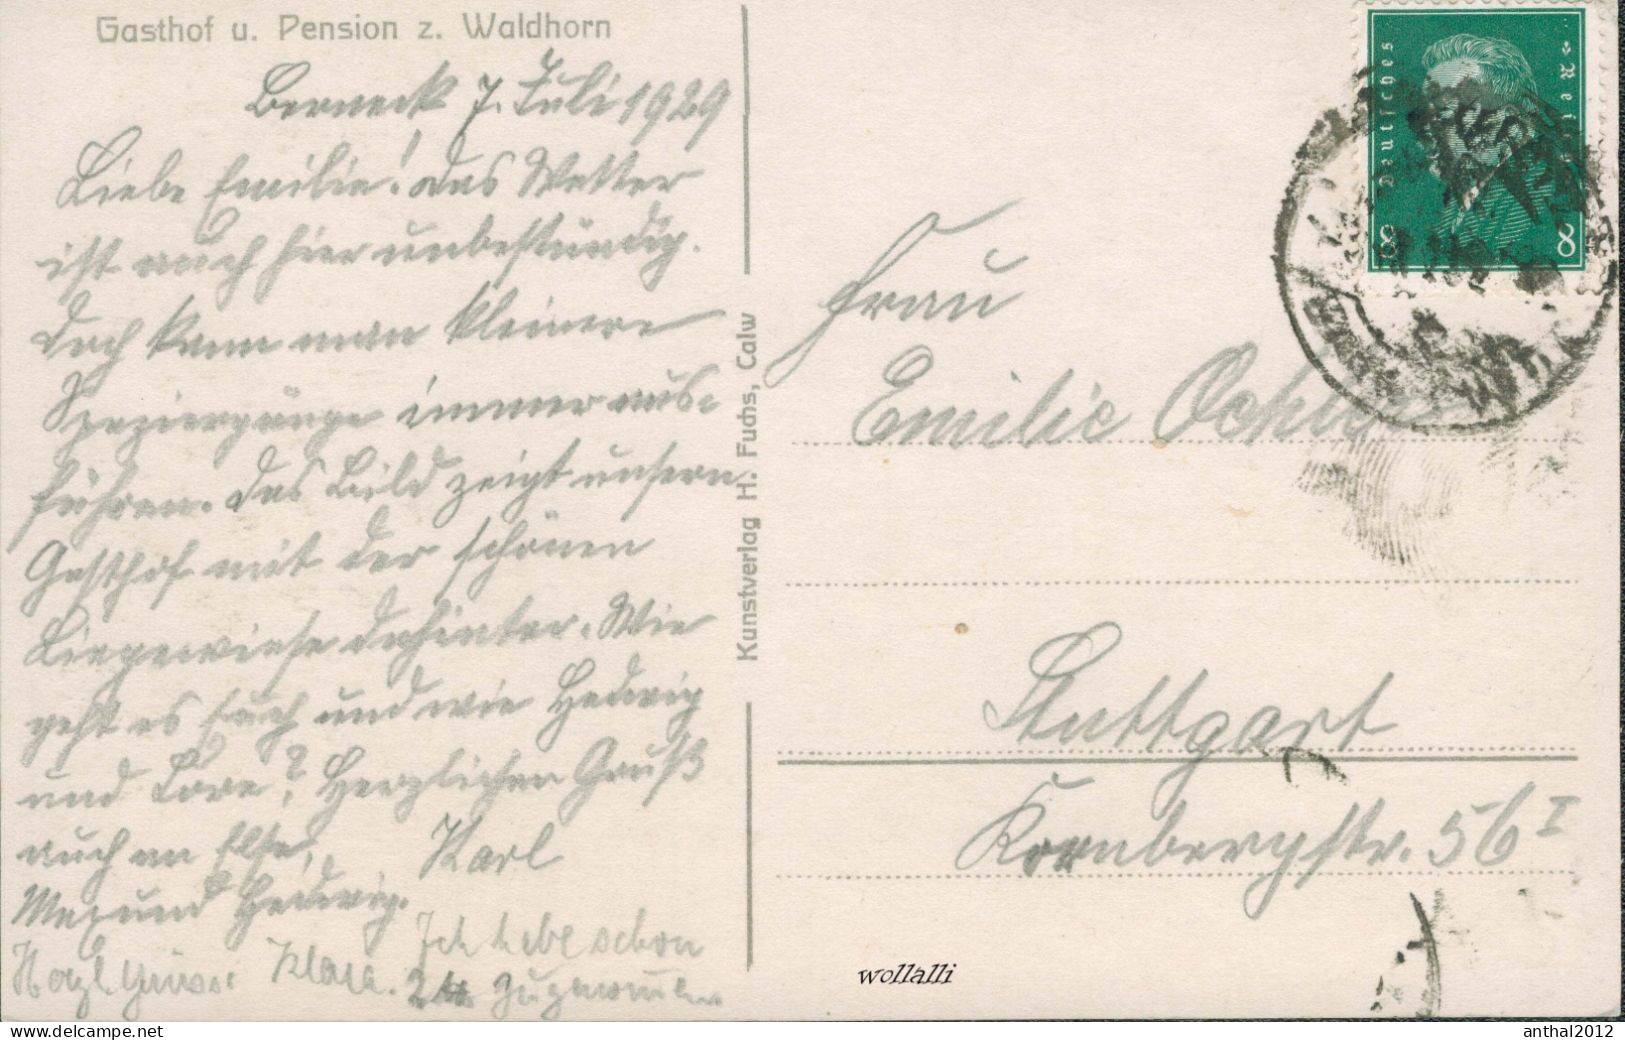 Gasthof u. Pension z. Waldhorn
Berneck 7. Juli 1929
Liebe Emilie! Das Wetter
ist auch hier unbeständig.
Doch kann man kleinere
Spaziergänge immer aus-
führen. Das Bild zeigt unsern
Gasthof mit der schönen
Liegewiese dahinter. Wie
geht es Euch und wie Hedwig
und Lore? Herzlichen Gruß
auch an Else, Karl
Max und Hedwig.
Herzl. Grüsse Klara. Ich habe schon
2 ℔ zugenommen
Kunstverlag H. Fuchs, Calw
Deutsches Reich
8 8
Frau
Emilie
Stuttgart
Kornbergstr. 56 I
wollalli
anthal2012
delcampe.net